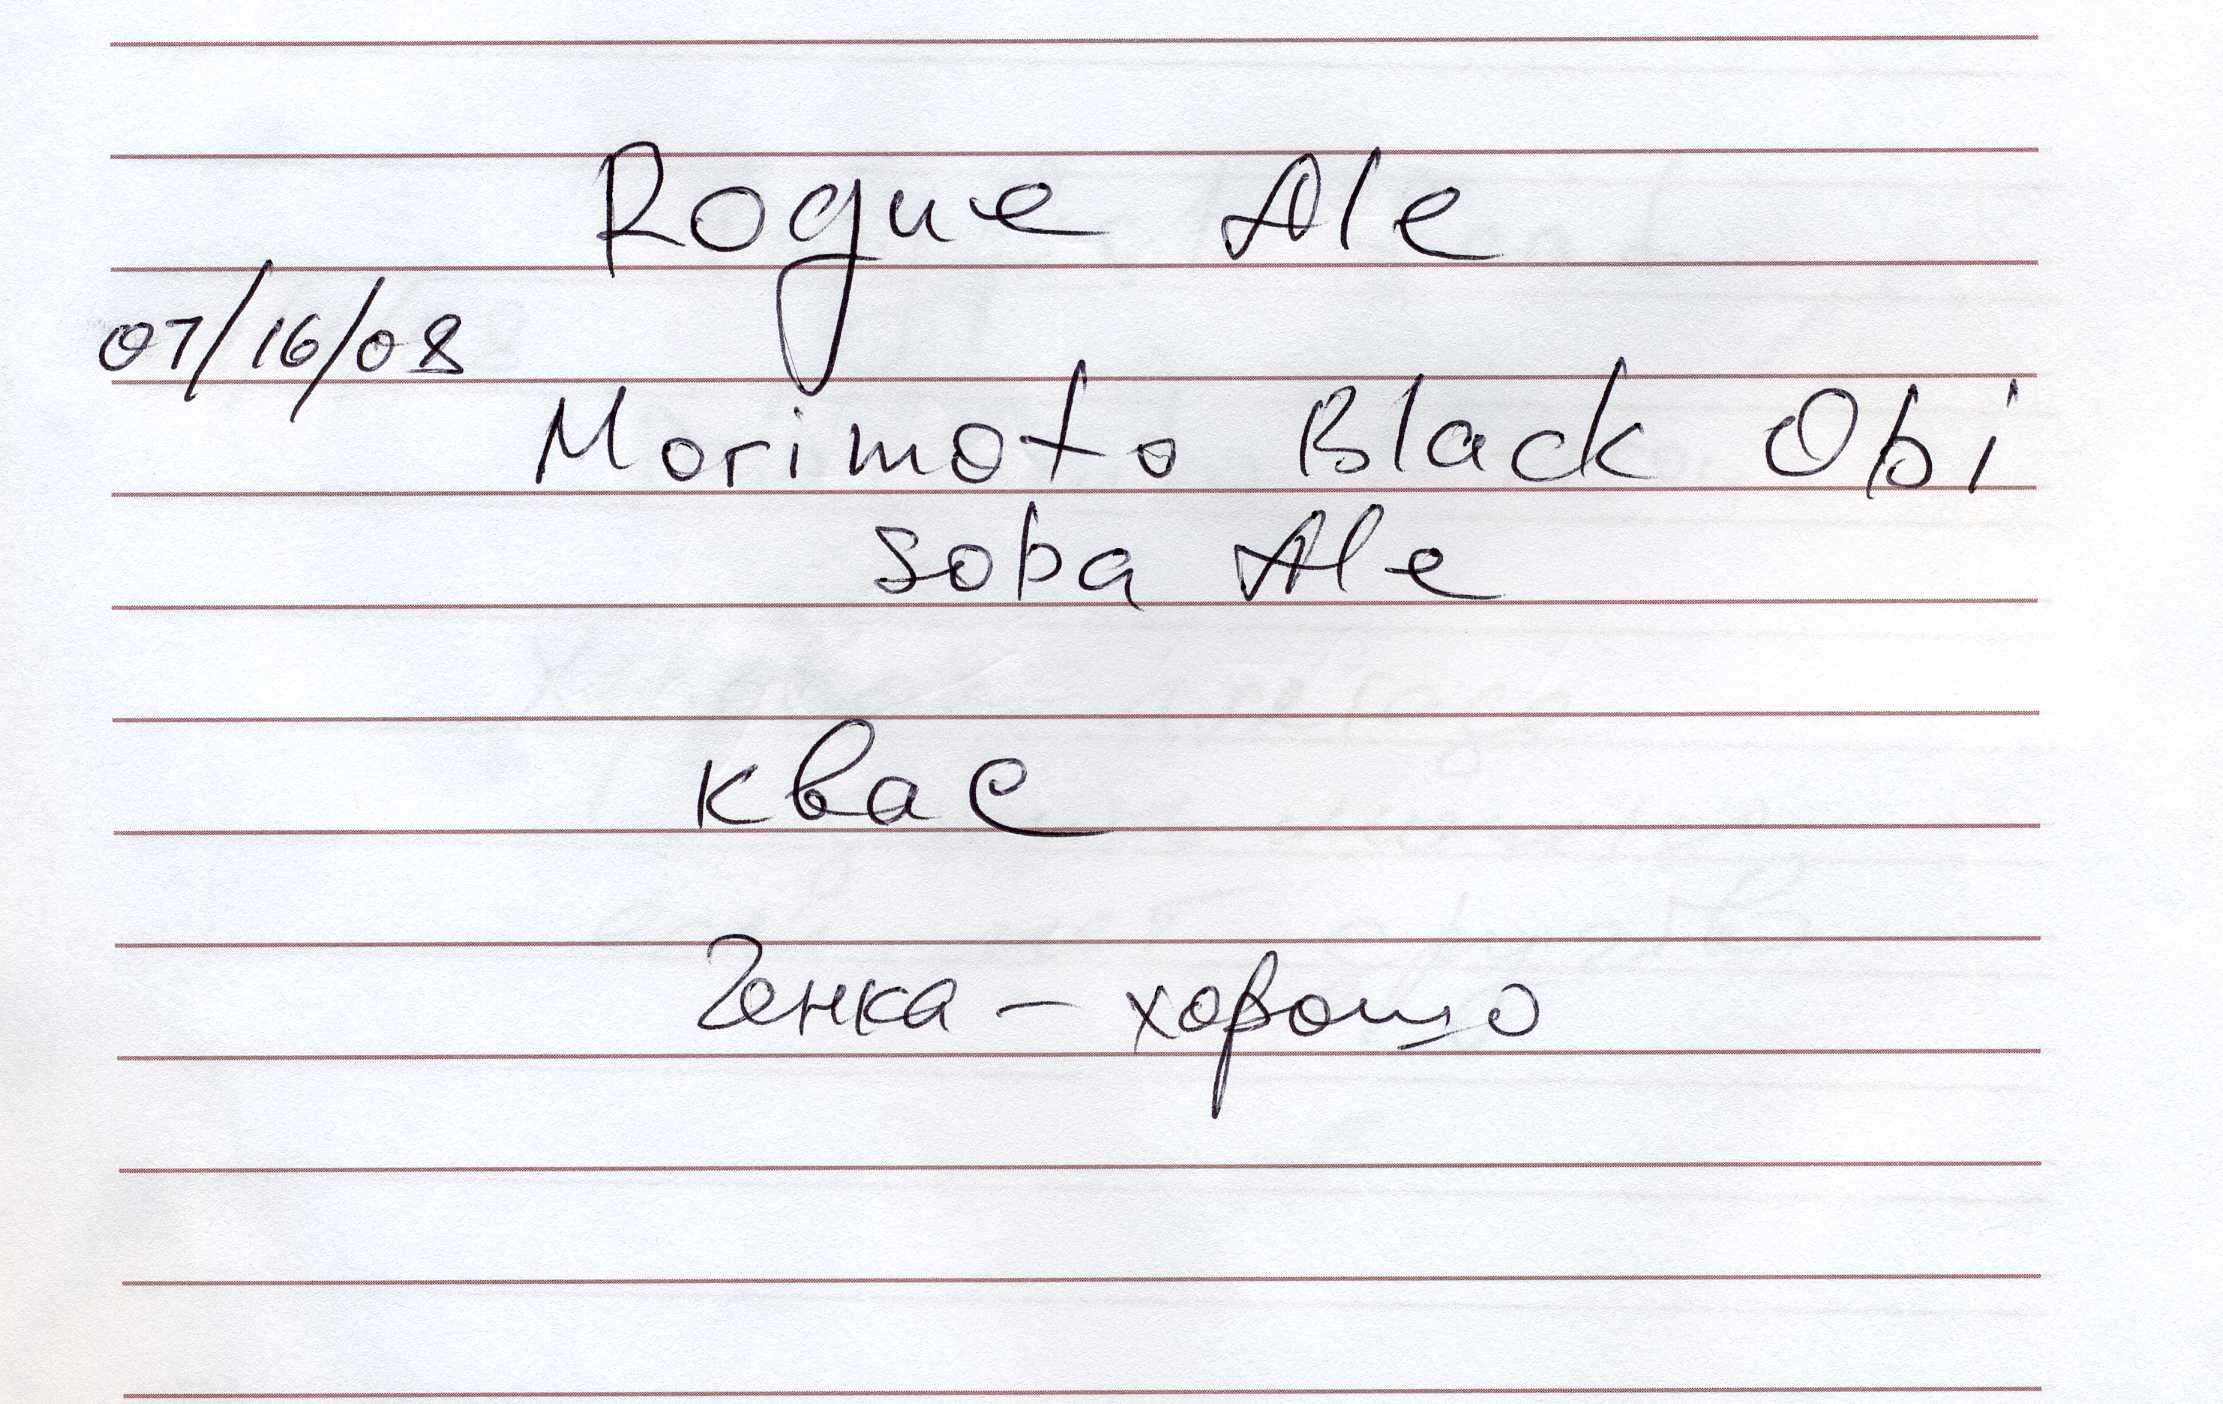 Rogue Ale
07/16/08
Morimoto Black Obi
soba Ale
квас
Генка - хорошо